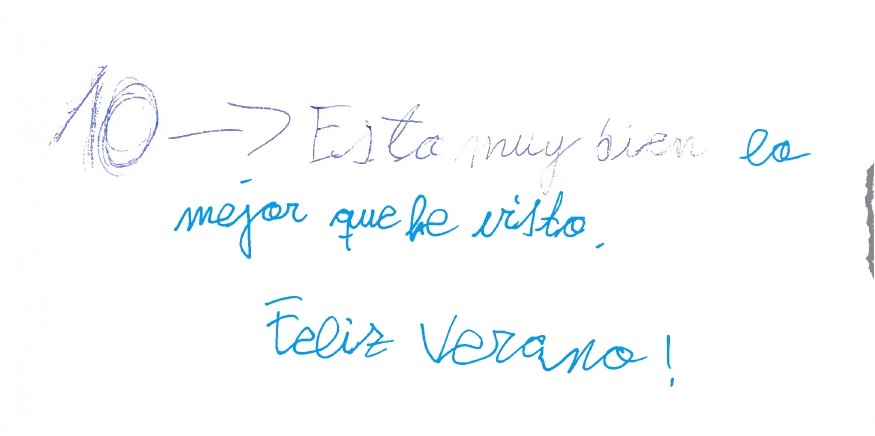 10 → Esta muy bien lo
mejor que he visto.
Feliz Verano!